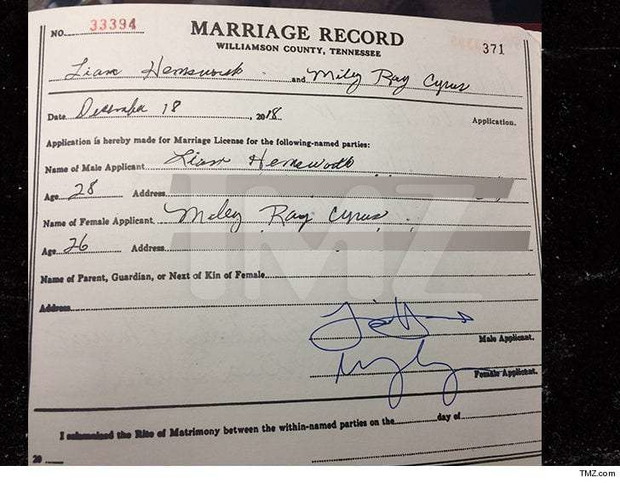 NO. 33394 MARRIAGE RECORD
WILLIAMSON COUNTY, TENNESSEE 371
Liam Hemsworth and Miley Ray Cyrus
Date December 18, 2018 Application.
Application is hereby made for Marriage License for the following-named parties:
Name of Male Applicant Liam Hemsworth
Age 28 Address
Name of Female Applicant Miley Ray Cyrus
Age 26 Address
TMZ
Name of Parent, Guardian, or Next of Kin of Female
Address
Male Applicant.
Female Applicant.
I solemnized the Rite of Matrimony between the within-named parties on the day of
20
TMZ.com